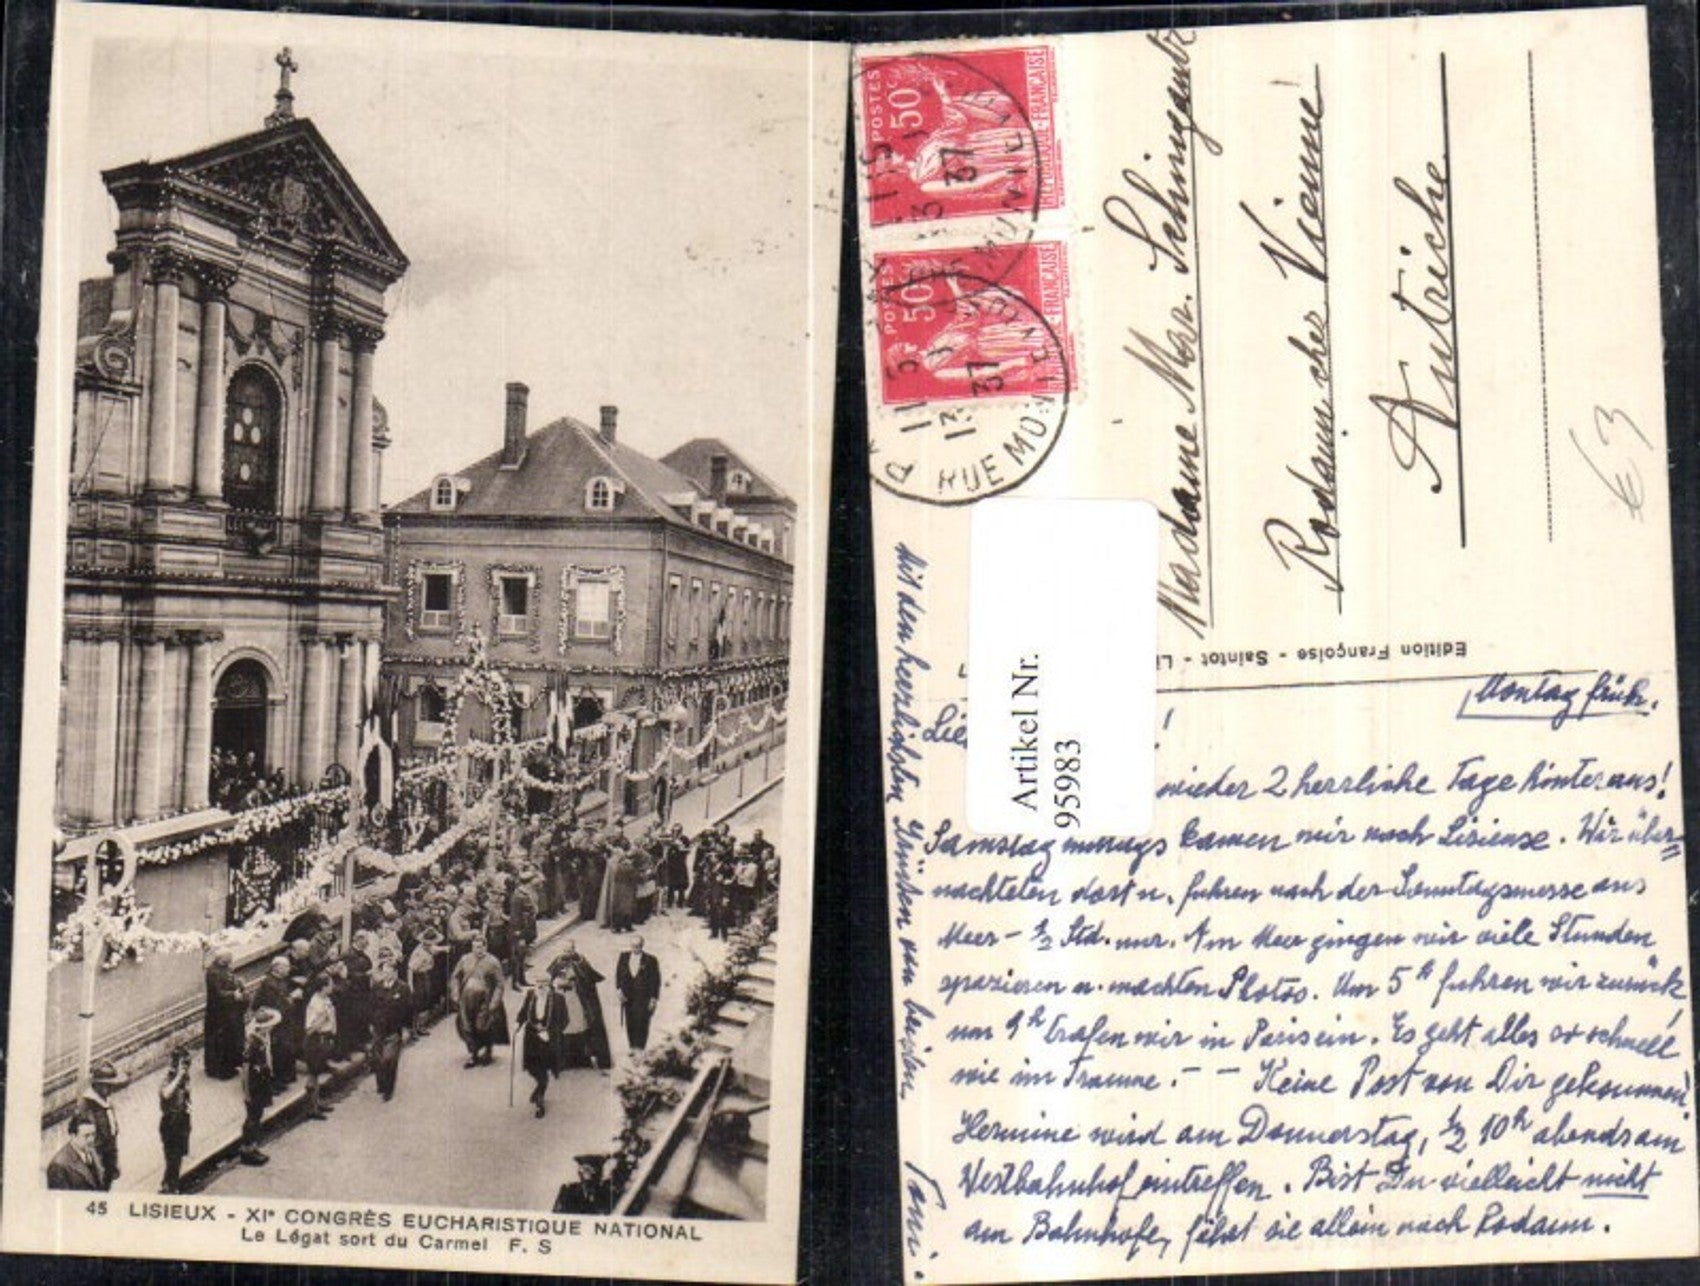 45 LISIEUX - XIe CONGRÈS EUCHARISTIQUE NATIONAL
Le Légat sort du Carmel F. S
POSTES
50c
REPUBLIQUE-FRANÇAISE
POSTES
50c
-FRANÇAISE
11 15
13
37
11 15
13
37
RUE MON
Madame Mar.
Rodaun cher Vienne
Autriche
€ 3
Edition Française - Saintot - Li
Artikel Nr.
95983
Montag früh.
Lie !
wieder 2 herrliche Tage hinter uns!
Samstag mittags kamen wir nach Lisieuse. Wir über=
nachteten dort u. fuhren nach der Sonntagsmesse ans
Meer - ½ Std. nur. Am Meer gingen wir viele Stunden
spazieren u. machten Photos. Um 5 h fuhren wir zurück,
um 9 h trafen wir in Paris ein. Es geht alles so schnell
wie im Traume. - - Keine Post von Dir gekommen.
Hermine wird am Donnerstag, ½ 10 h abends am
Westbahnhof eintreffen. Bist Du vielleicht nicht
am Bahnhofe, fährt sie allein nach Rodaun.
Mit den herzlichsten Grüßen von beiden